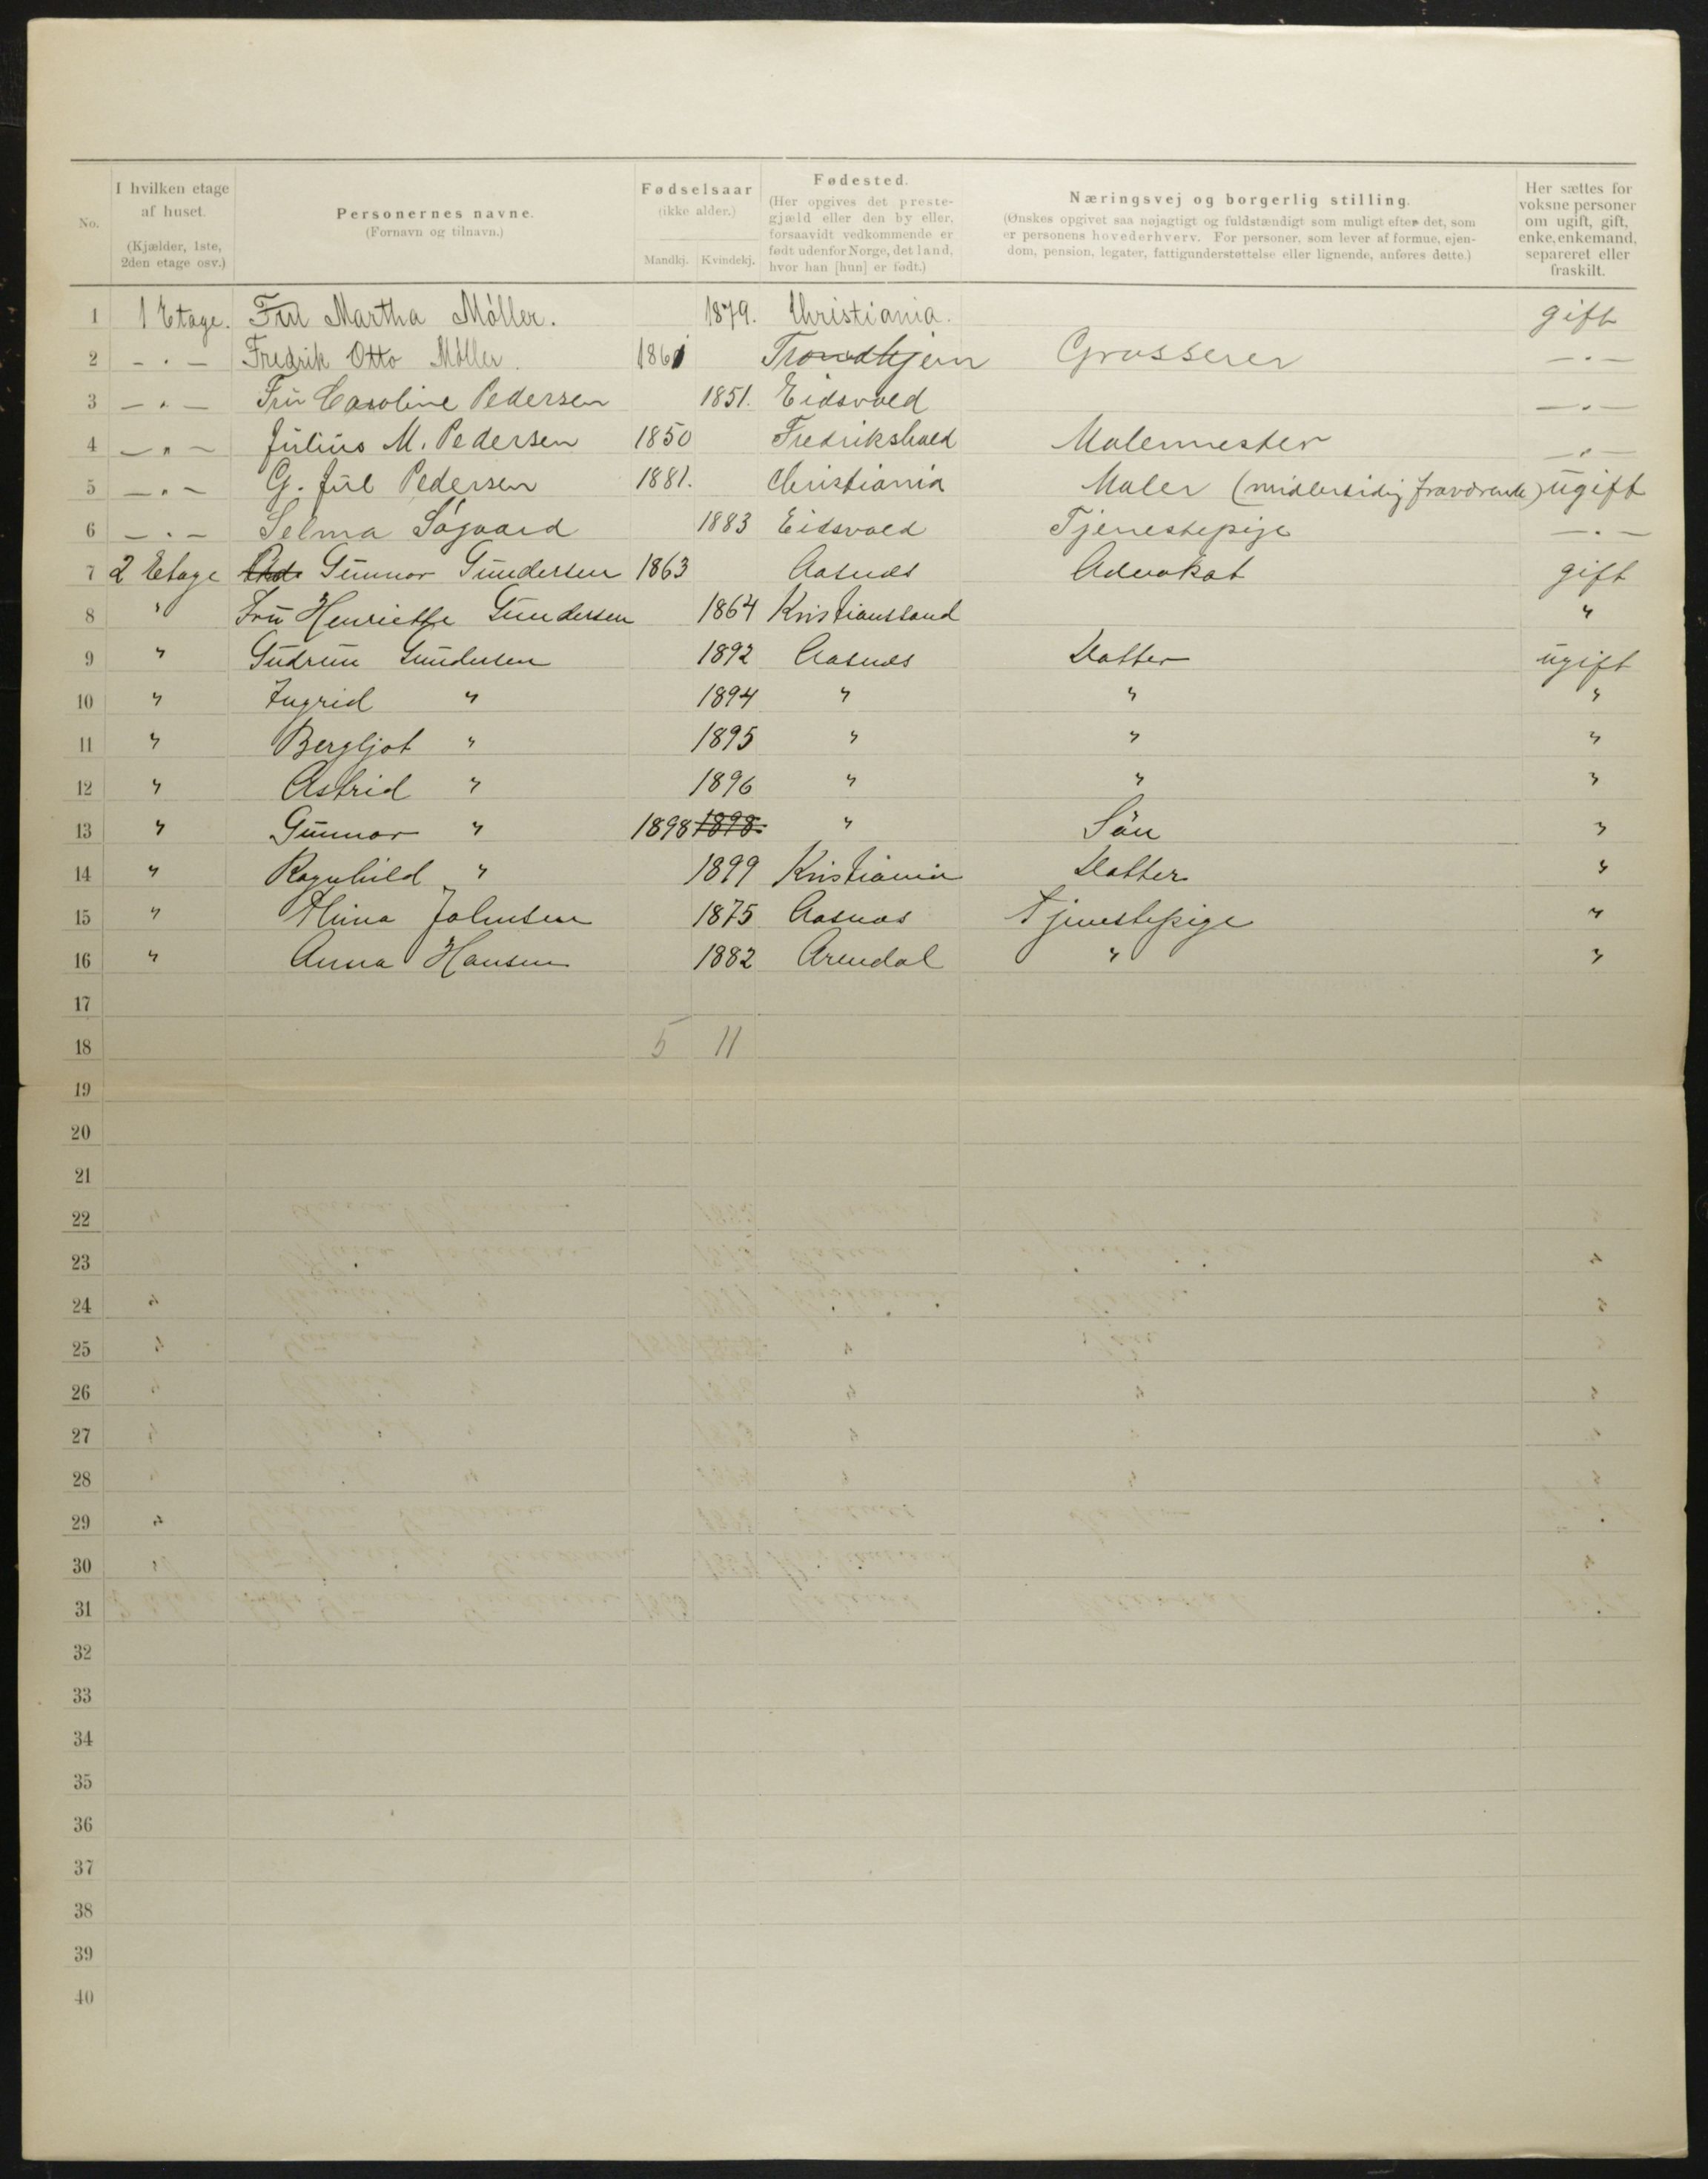 No.
I hvilken etage af huset. (Kjælder, 1ste, 2den etage osv.)
Personernes navne. (Fornavn og tilnavn.)
Fødselsaar (ikke alder.) Mandkj. Kvindekj.
Fødested. (Her opgives det prestegjæld eller den by eller, forsaavidt vedkommende er født udenfor Norge, det land, hvor han [hun] er født.)
Næringsvej og borgerlig stilling. (Ønskes opgivet saa nøjagtigt og fuldstændigt som muligt efter det, som er personens hovederhverv. For personer, som lever af formue, ejendom, pension, legater, fattigunderstøttelse eller lignende, anføres dette.)
Her sættes for voksne personer om ugift, gift, enke, enkemand, separeret eller fraskilt.
1 1 Etage. Fru Martha Møller. 1879. Christiania. gift
2 - . - Fredrik Otto Møller. 1861 Trondhjem Grosserer - . -
3 - . - Fru Caroline Pedersen 1851. Eidsvold - . -
4 - " - Julius M. Pedersen 1850 Fredrikshald Malermester - . -
5 - . - G. Jul Pedersen 1881. Christiania Maler (midlertidig fraværende) ugift
6 - . - Selma Søgaard 1883 Eidsvold Tjenestepige - . -
7 2 Etage Gunnar Gundersen 1863 Aasnes Advokat gift
8 " Fru Henriette Gundersen 1864 Kristianssand "
9 " Gudrun Gundersen 1892 Aasnes Datter ugift
10 " Ingrid " 1894 " " "
11 " Bergljot " 1895 " " "
12 " Astrid " 1896 " " "
13 " Gunnar " 1898 1898. " Søn "
14 " Ragnhild " 1899 Kristiania Datter "
15 " Thina Johnsen 1875 Aasnas Tjenestepige "
16 " Anna Hansen 1882 Arendal " "
17
18 5 11
19
20
21
22
23
24
25
26
27
28
29
30
31
32
33
34
35
36
37
38
39
40